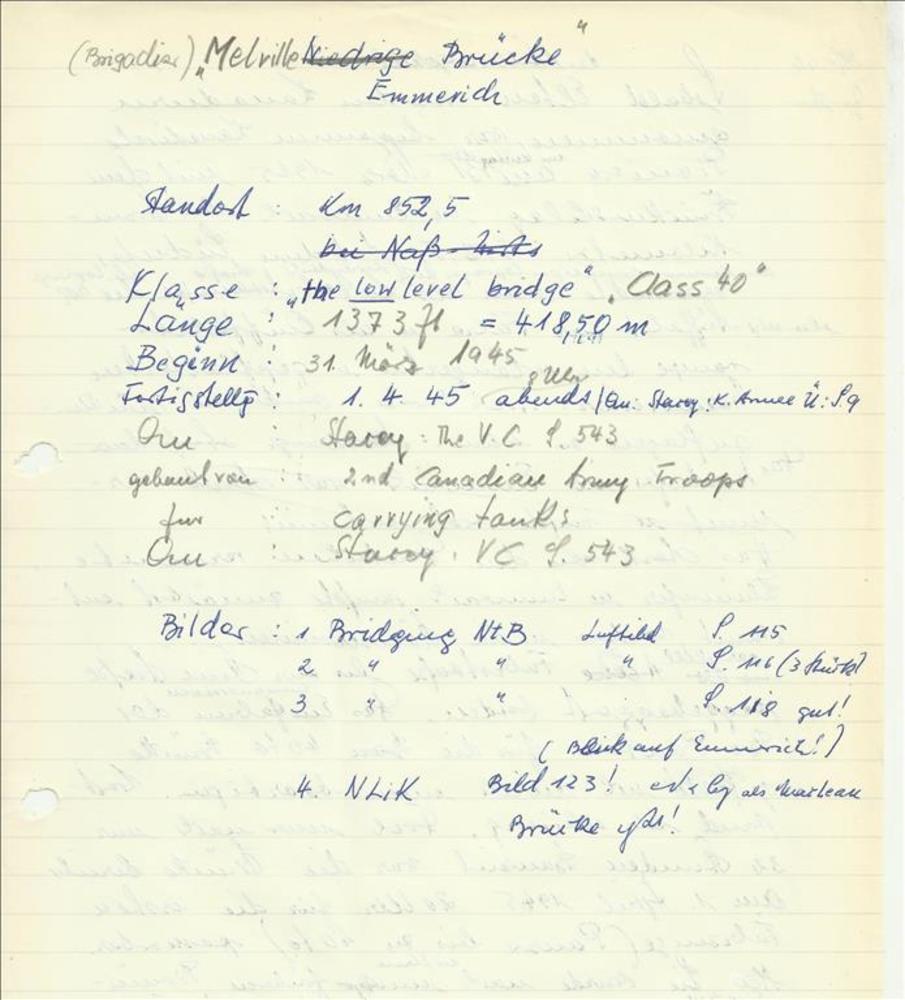 (Brigadier) „Melville Niedrige Brücke"
Emmerich
Standort : Km 852,5
bei Naß-
Klasse : „the low level bridge" „Class 40"
Länge : 1373 ft = 418,50 m
Beginn : 31. März 1945
8 Uhr
Fertigstellg : 1. 4. 45 abends / Qu: Stacey: K. Armee Ü: S.9
Qu : Stacey: The V.C. S. 543
gebaut von : 2nd Canadian Army Troops
für : carrying tanks
Qu : Stacey. VC S. 543
Bilder : 1 Bridging NtB Luftbild S. 115
2 " " " S. 116 (3 Stück)
3 " " S. 118 gut!
(Blick auf Emmerich!)
4. NLiK Bild 123! als
Brücke